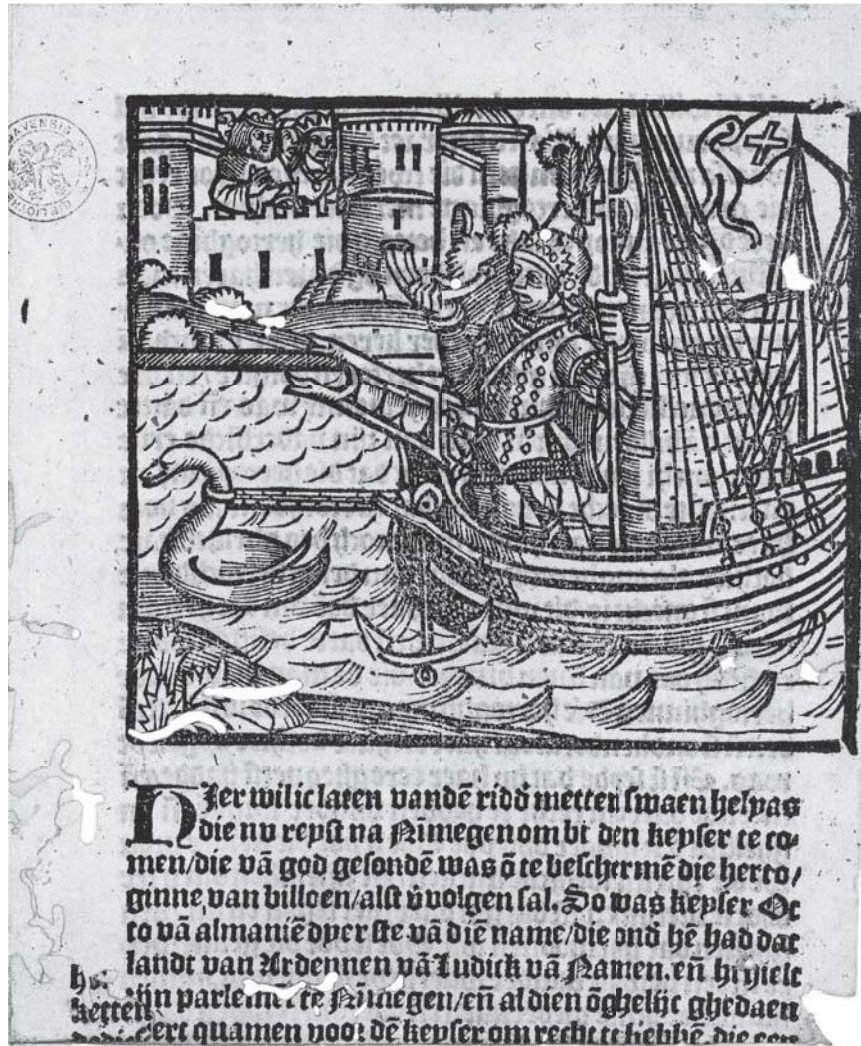 Hier wil ic laten vandē riddʼ metter swaen helyas
die nv reyst na Nimegen om bi den keyser te co⸗
men/die vā god gesondē was ō te beschermē die herto/
ginne van billoen/alst v volgen sal. So was keyser Ot
to vā almaniē dyer ste vā diē name/die ondʼ hē had dat
landt van Ardennen vā Ludick vā Namen. en̄ hi hielt
sijn parlemēt te Nimegen/en̄ al dien ōghelijc ghedaen
quamen voor dē keyser om recht te hebbē die een